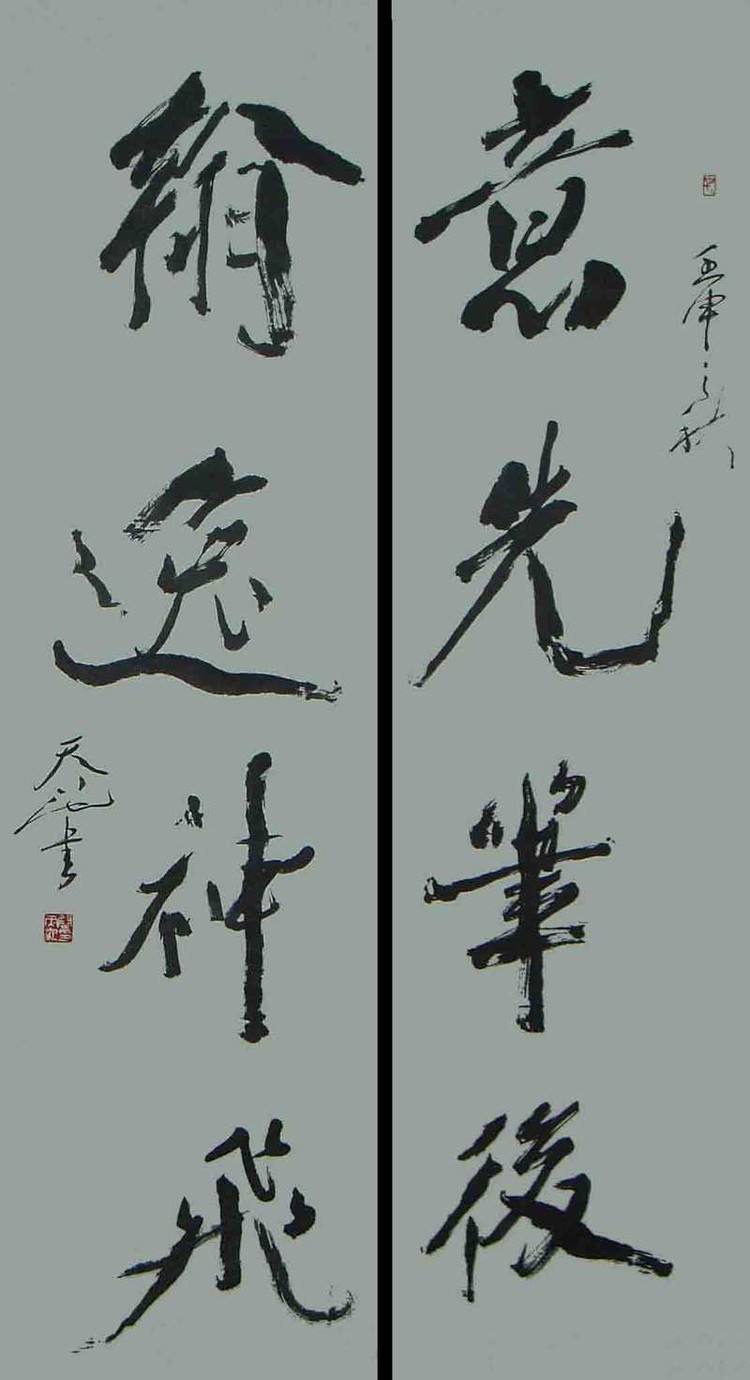 壬申之秋
意先筆後
翰逸神飛
天池書